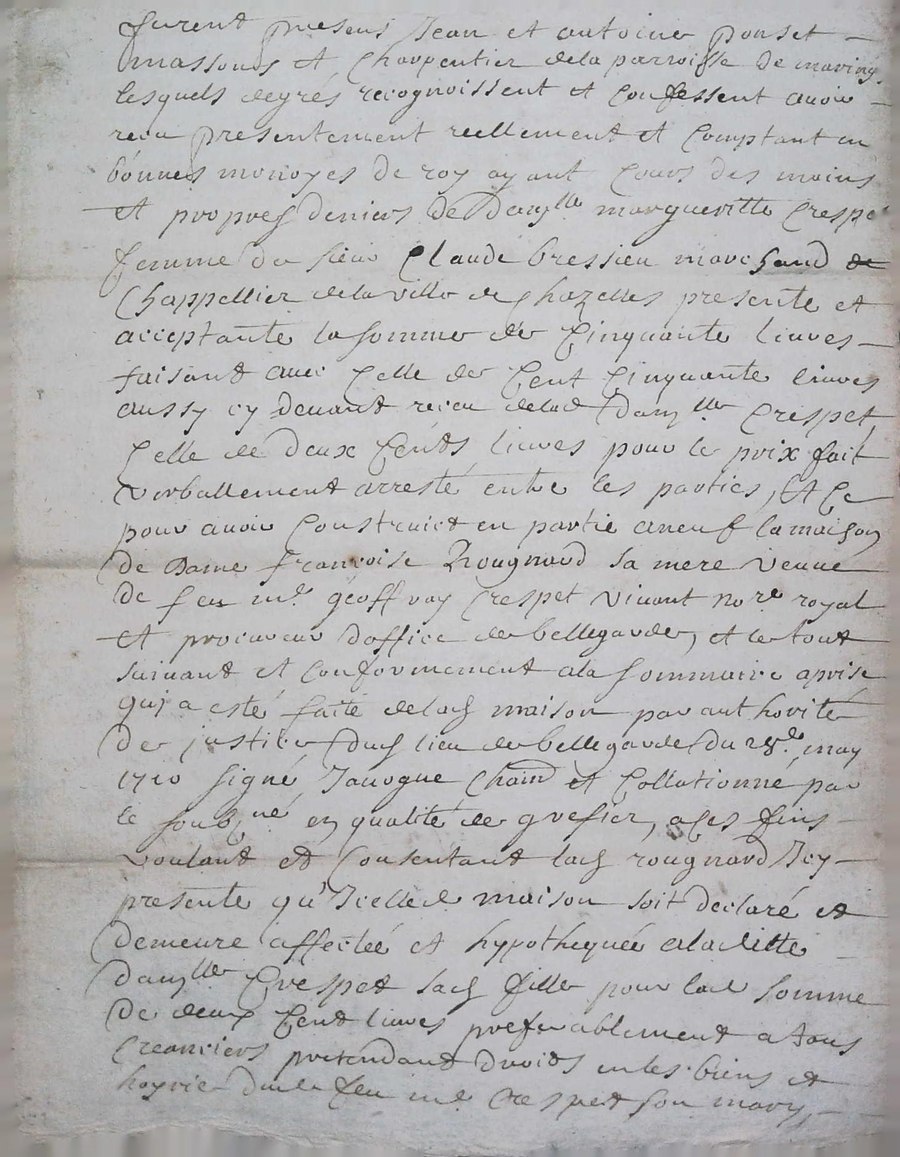 furent presens Jean et antoine ponset
massons et Charpentier dela parroisse de marings
lesquels degres recognoissent et Confessent avoir
receu presentement reellement et Comptant en
bonnes monoyes de roy ayant Cours des mains
et propres deniers de Dam^lle margueritte Crespet
femme du sieur Claude bressieu marchand de
Chappellier dela ville de Chazelles presente et
acceptante la somme de Cinquante livres
faisant avec Celle de Cent Cinquante livres
aussy cy devant receu delad Dam^lle Crespet
Celle de deux Cents livres pour le prix fait
verballement arresté entre les parties, et Ce
pour avoir Construict en partie aneuf la maison
de Dame françoise Rougnard sa mere veuve
de feu m^e geoffray Crespet vivant no^re royal
et procureur doffice de bellegarde, et le tout
suivant et Conformement ala sommaire aprise
quj a esté faite delad maison par authorité
de justice dud lieu de bellegarde du 28^e may
1710 signé Javogue Cham et Collationné par
le soub^né en qualité de grefier, a Ces fins
voulant et Consentant lad rougnard Icy
presente qu'Icelle maison soit declaré et
demeure affectée et hypothequée aladitte
dam^lle Crespet sad fille pour lad somme
de deux Cent livres preferablement a tous
Creanciers pretendant droits en les biens et
hoyrie dud feu m^e Crespet son mary,